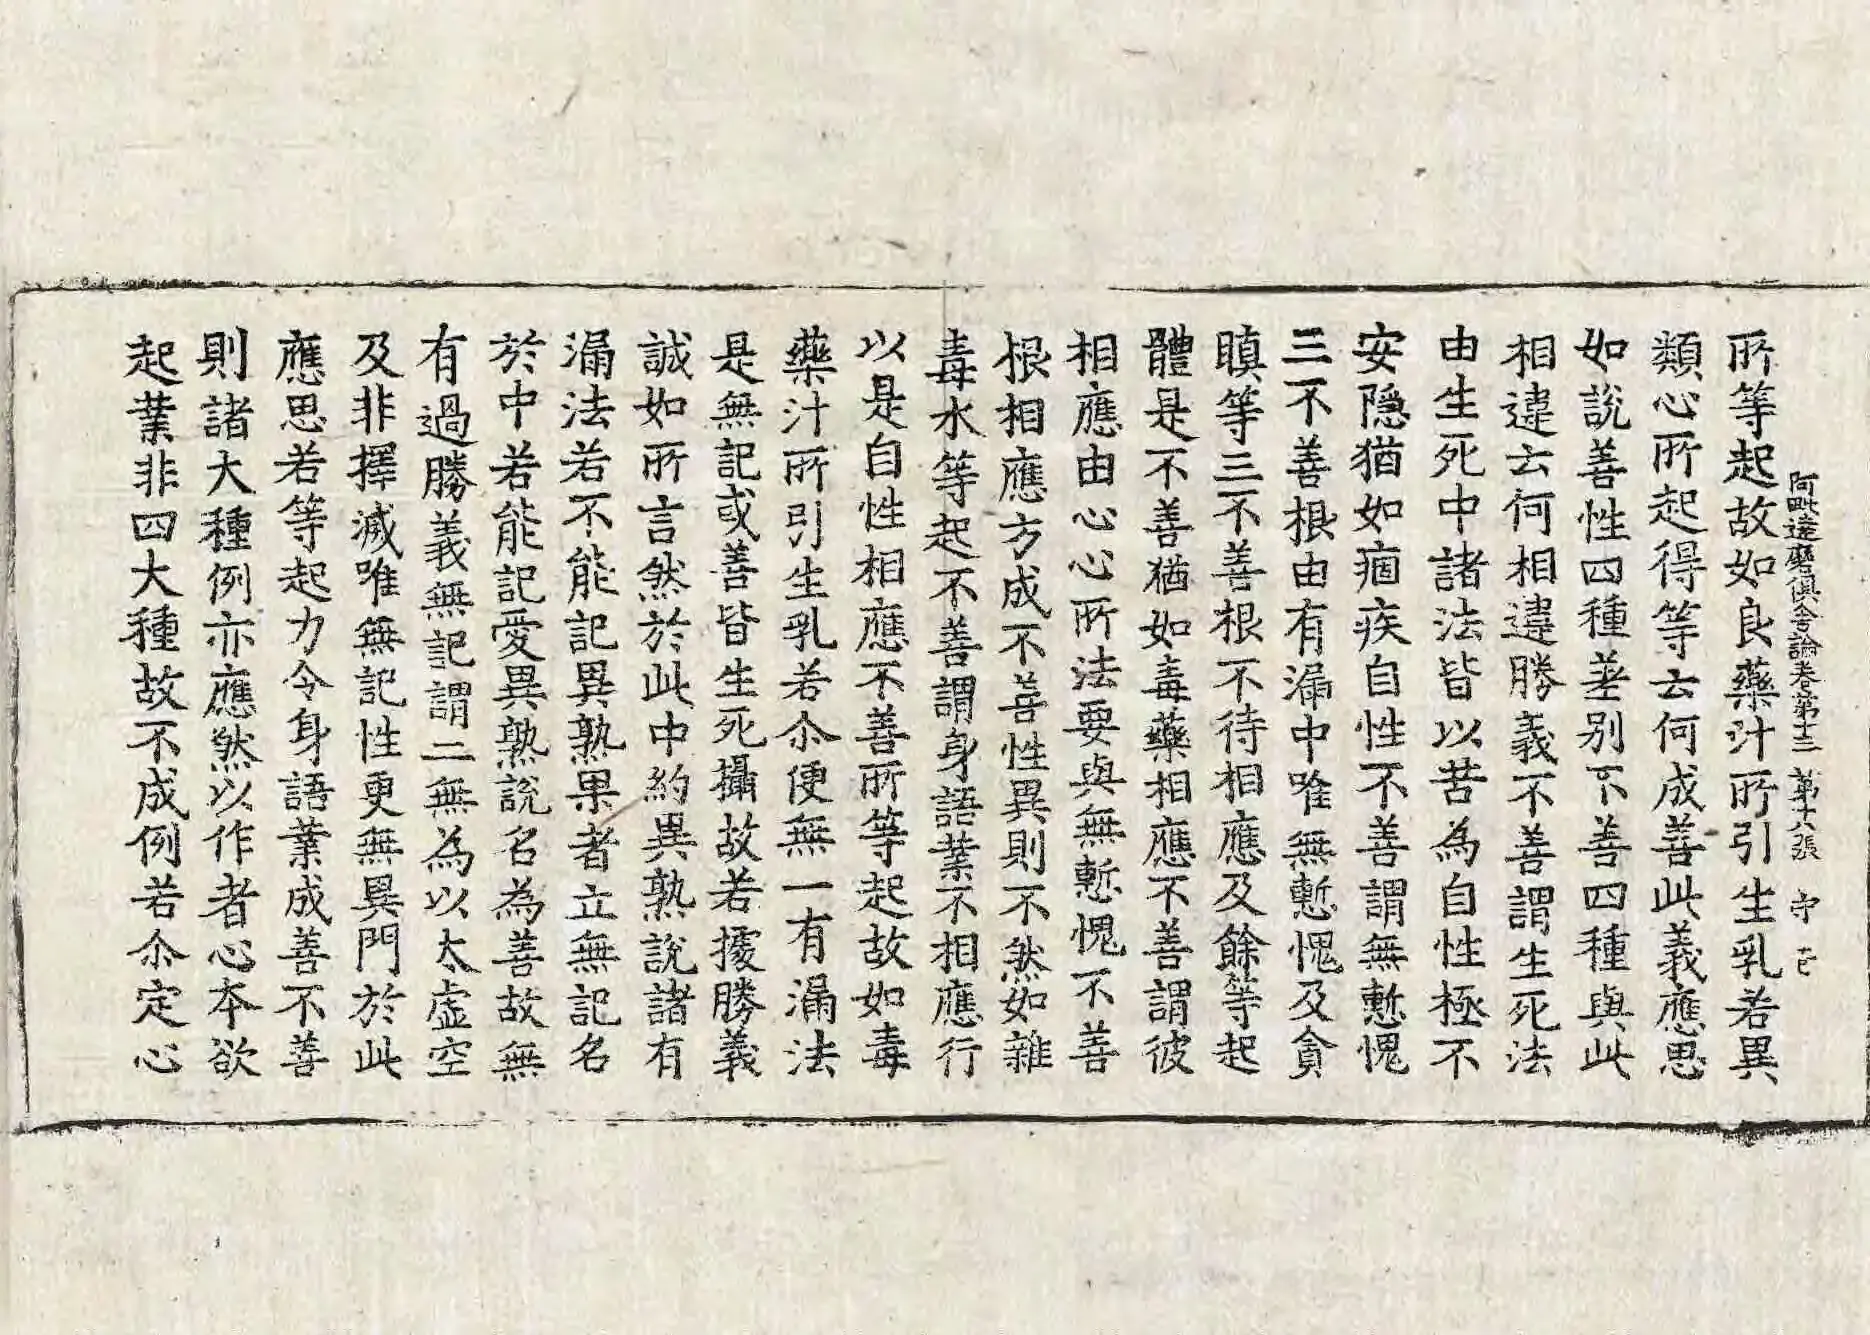 阿毗達磨俱舍論卷第十三 第十六張 守
所等起故如良藥汁所引生乳若異
類心所起得等云何成善此義應思
如說善性四種差別不善四種與此
相違云何相違勝義不善謂生死法
由生死中諸法皆以苦為自性極不
安隱猶如痼疾自性不善謂無慙愧
三不善根由有漏中唯無慙愧及貪
瞋等三不善根不待相應及餘等起
體是不善猶如毒藥相應不善謂彼
相應由心心所法要與無慙愧不善
根相應方成不善性異則不然如雜
毒水等起不善謂身語業不相應行
以是自性相應不善所等起故如毒
藥汁所引生乳若尒便無一有漏法
是無記或善皆生死攝故若據勝義
誠如所言然於此中約異熟說諸有
漏法若不能記異熟果者立無記名
於中若能記愛異熟說名為善故無
有過勝義無記謂二無為以太虛空
及非擇滅唯無記性更無異門於此
應思若等起力令身語業成善不善
則諸大種例亦應然以作者心本欲
起業非四大種故不成例若尒定心